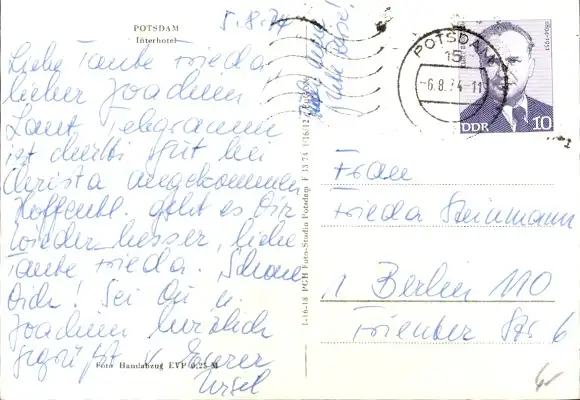 5.8.74
POTSDAM
Interhotel
Liebe Tante Frieda
lieber Joachim!
Laut Telegramm
ist gut bei
Christa angekommen
Hoffentl. geht es Dir
wieder besser, liebe
Tante Frieda. Schone
Dich! Sei Du u.
Joachim herzlich
gegrüßt v. Eurer
Ursel
Foto Handabzug EVP 0,25 M
gute Reise!
I-16-18 PGH Foto-Studio Potsdam F 13 74 1/16/12
POTSDAM
15
-6.8.74-11
DDR 10
Frau
Frieda Steinmann
1 Berlin 110
Str 6